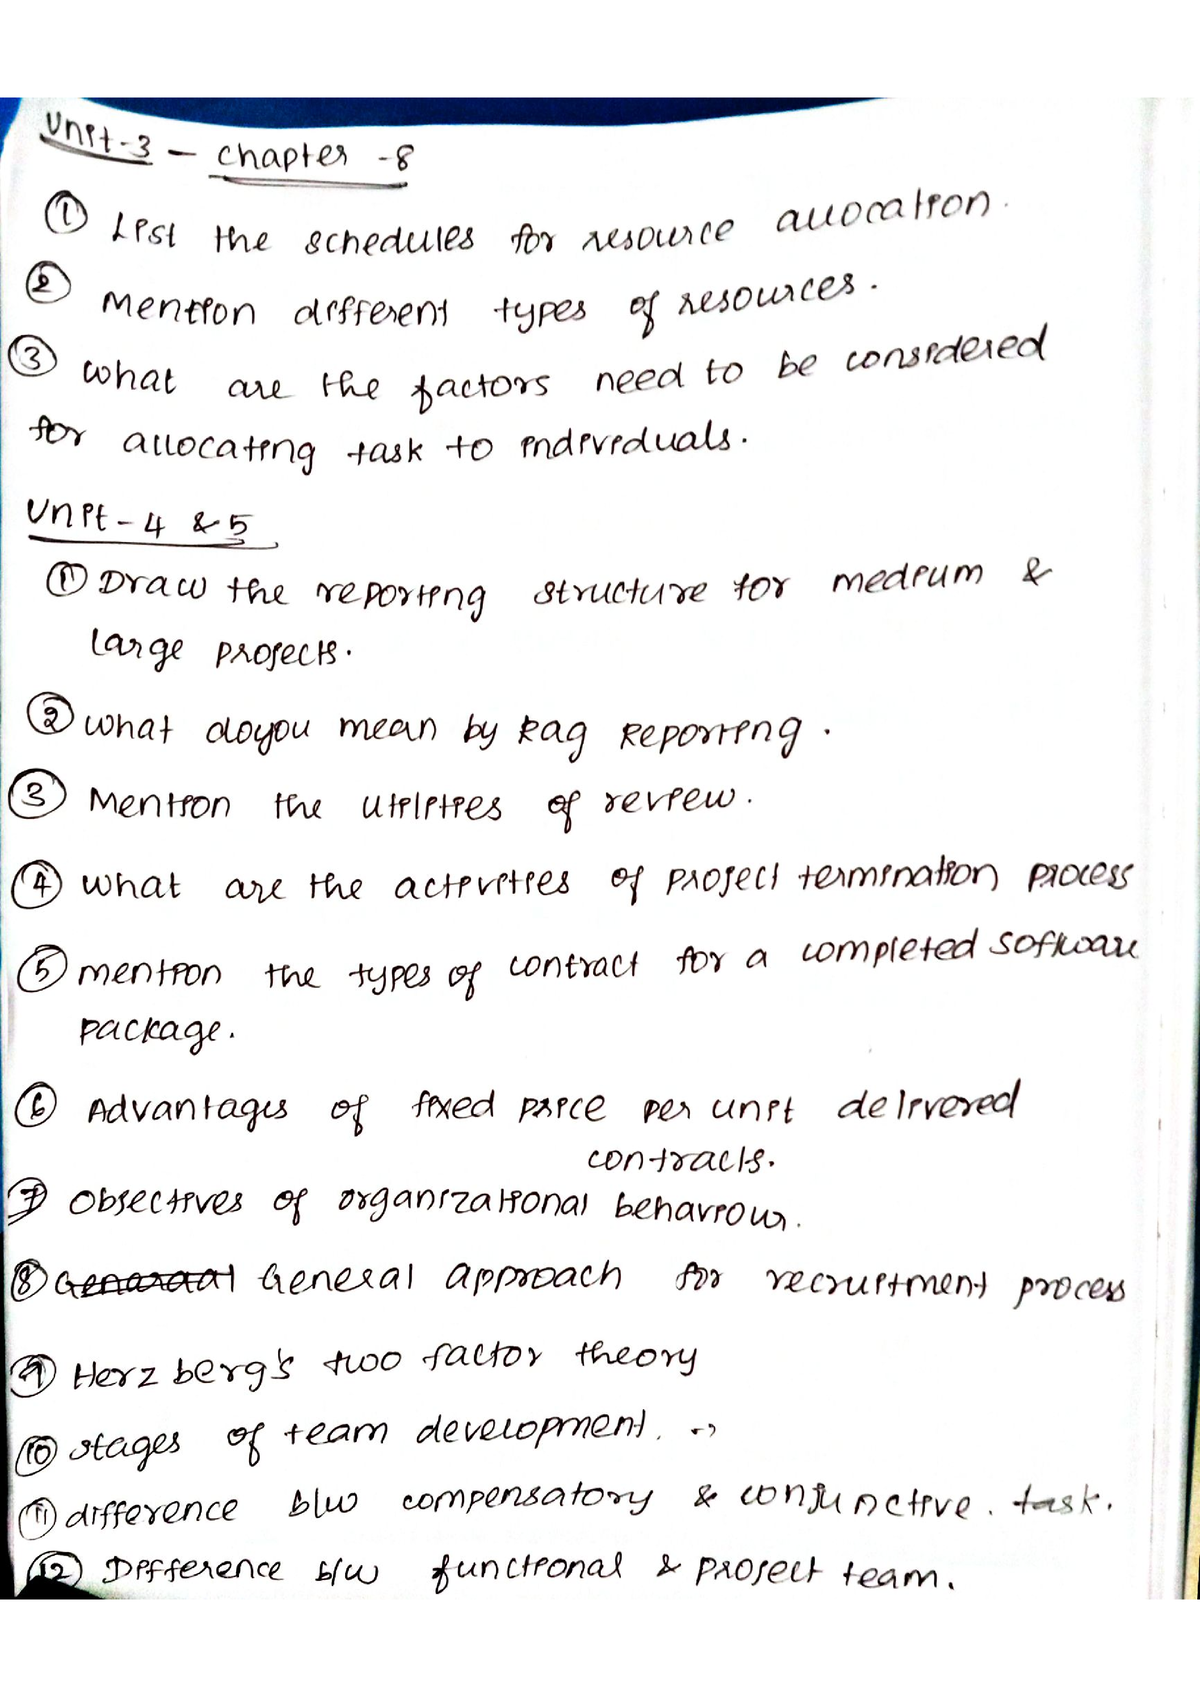 Unit-3 - chapter -8
① List the schedules for resource allocation.
② Mention different types of resources.
③ what are the factors need to be considered
for allocating task to individuals.
Unit-4 & 5
① Draw the reporting structure for medium &
large projects.
② what do you mean by Rag Reporting.
③ Mention the utilities of review.
④ what are the activities of project termination process
⑤ mention the types of contract for a completed software
package.
⑥ Advantages of fixed price per unit delivered
contracts.
⑦ objectives of organizational behaviour.
⑧ General approach for recruitment process
⑨ Herz berg's two factor theory
⑩ stages of team development.
⑪ difference b/w compensatory & conjunctive. task.
⑫ Difference b/w functional & project team.